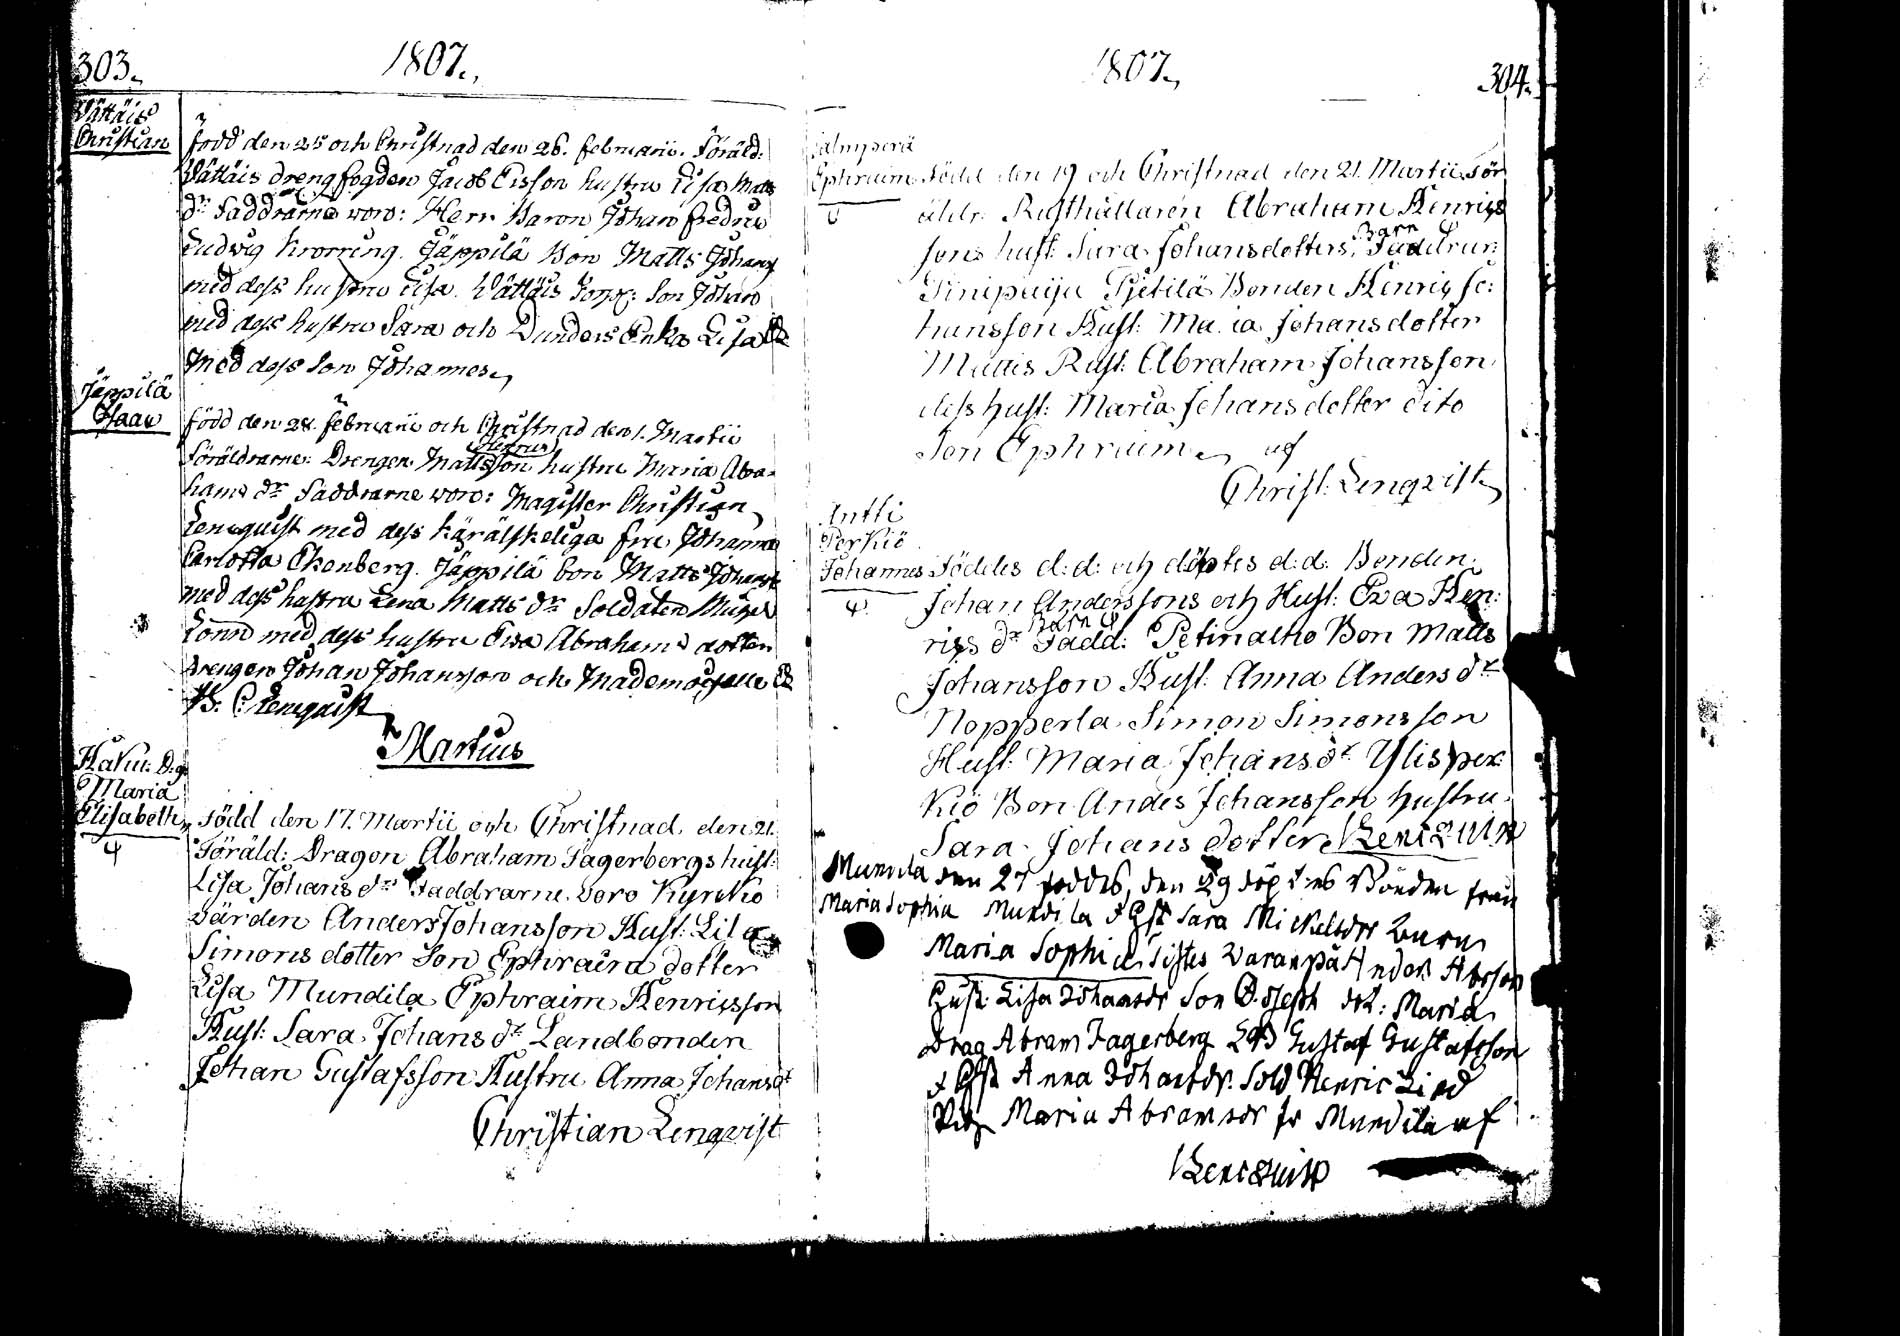 303.
1807.
Wättäis
Christian
född den 25 och Christnad den 26. februarii. Föräld:
Wättäis drengfogden Jacob Ersson hustru Lisa Matts
dr Faddrarne woro: Herr Baron Johan fredric
Ludvig Jäppilä Bon Matts Johans
med dess hustru Lisa. Wättäis Torp: Son Johan
med dess hustru Sara och Dunders Enka Lisa
Med dess Son Johannes.
Jäppilä
Isaac
född den 28. februarii och Christnad den 1. Martii
Föräldrarne: Drengen Matts Henrics son hustru Maria Abra-
hams dr Faddrarne woro: Magister Christian
Lenquist med dess kärälskeliga fru Johanna
Carlotta Ekenberg. Jäppilä bon Matts Johans
med dess hustru Lena Matts dr Soldaten
Lönn med dess hustru Eva Abrahams dotter
drengen Johan Johansson och Mademoiselle
C. Lenquist
Martius
Maria
Elisabeth
Född den 17. Martii och Christnad den 21.
Föräld: Dragon Abraham Fagerbergs hust:
Lisa Johans dr Faddrarne voro Kyrkio
värden Anders Johansson Hust: Lisa
Simons dotter Son Ephraim dotter
Lisa Mundila Ephraim Henricsson
Hust: Sara Johans dr Landbonden
Johan Gustafsson Hustru Anna Johans dr
Christian Lenqvist
1807.
304.
Ephraim Född den 19 och Christnad den 21. Martii För
äldr: Rusthållaren Abraham Henrics
sons hust: Sara Johansdotters, Barn Faddrar:
Pietilä Bonden Henric Jo:
hansson Hust: Maria Johansdotter
Mattis Rust: Abraham Johansson
dess hust: Maria Johansdotter dito
Son Ephraim af
Christ: Lenqvist
Antti
Perkiö
Johannes Föddes d: d: och döptes d: d: Bonden
Johan Anderssons och Hust: Eva Hen:
rics dr Barn Fadd: Petinalho Bon Matts
Johansson Hust: Anna Anders dr
Nopperla Simon Simonsson
Hust: Maria Johans dr Ylisper
kiö Bon Andes Johansson hustru
Sara Johans dotter Lencquist
Mundila den 27 föddes, den 29 döptes Bonden från
Maria Sophia Mundila Hust Sara Mickelsdr Barn
Maria Sophia Anders Abrson
Hust: Lisa Johansdr Son Joseph dr: Maria
Drag Abram Fagerberg Gustaf Gustafsson
Hust Anna Johansdr. Sold Henric Lind
Maria Abramsdr fr Mundila af
Lencquist